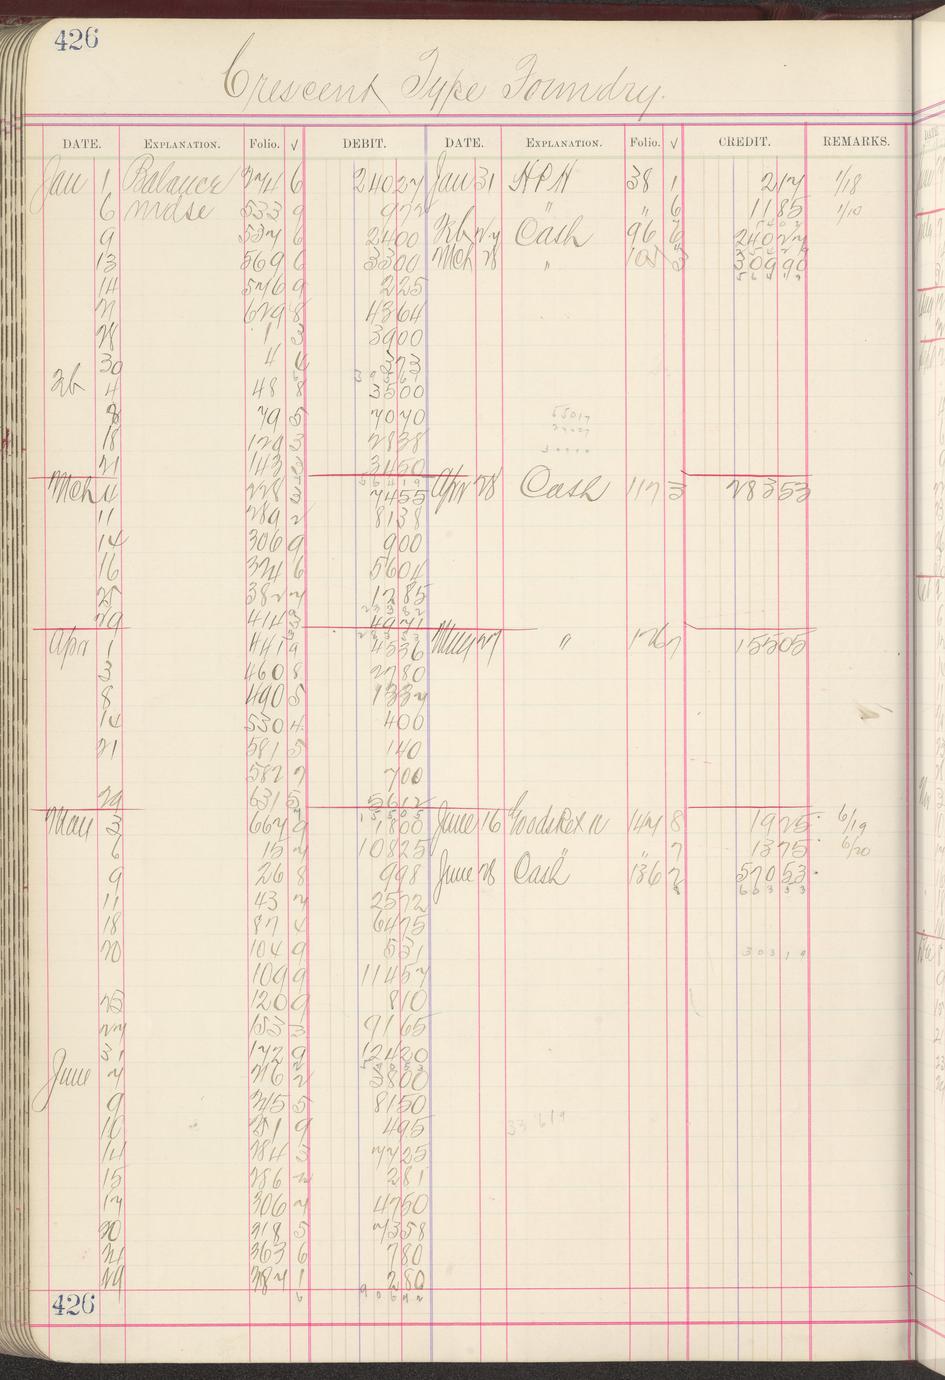 426
Crescent Type Foundry.
DATE. EXPLANATION. Folio. √ DEBIT. DATE. EXPLANATION. Folio. √ CREDIT. REMARKS.
Jan 1 Balance 274 6 24027 Jan 31 HPH 38 1 217 1/18
6 Mdse 533 9 972 " " 6 1185 1/10
9 537 6 2400 Feb 27 Cash 96 6 24027
13 569 6 3300 Mch 28 " 105 3 30990
14 576 9 225
21 629 8 4364
28 1 3 3900
30 4 4 373
Feb 4 48 8 3500
8 79 5 7070
18 129 3 2838
21 143 3450
Mch 4 228 3 7455 Apr 28 Cash 117 3 28353
11 289 2 8138
14 306 9 900
16 324 6 5604
25 382 7 1285
29 414 3 4971
Apr 1 441 9 4536 May 27 " 126 7 15505
3 460 8 2780
8 490 5 1337
14 530 4 400
21 581 5 140
582 7 700
29 631 5 5612
May 3 667 9 1800 June 16 Goods Ret'd 147 8 1925 6/19
6 15 7 10825 " " 7 1375 6/20
9 26 8 998 June 28 Cash 136 2 57053
66353
11 43 7 2572
18 87 4 6475
20 104 9 531
30319
109 9 11457
25 120 9 810
27 153 3 9165
31 172 9 12420
June 7 216 2 3800
9 245 5 8150
10 251 9 495
33619
14 284 3 7725
15 286 2 281
17 306 7 4750
20 318 5 7358
24 363 6 780
29 387 1 280
90692
426